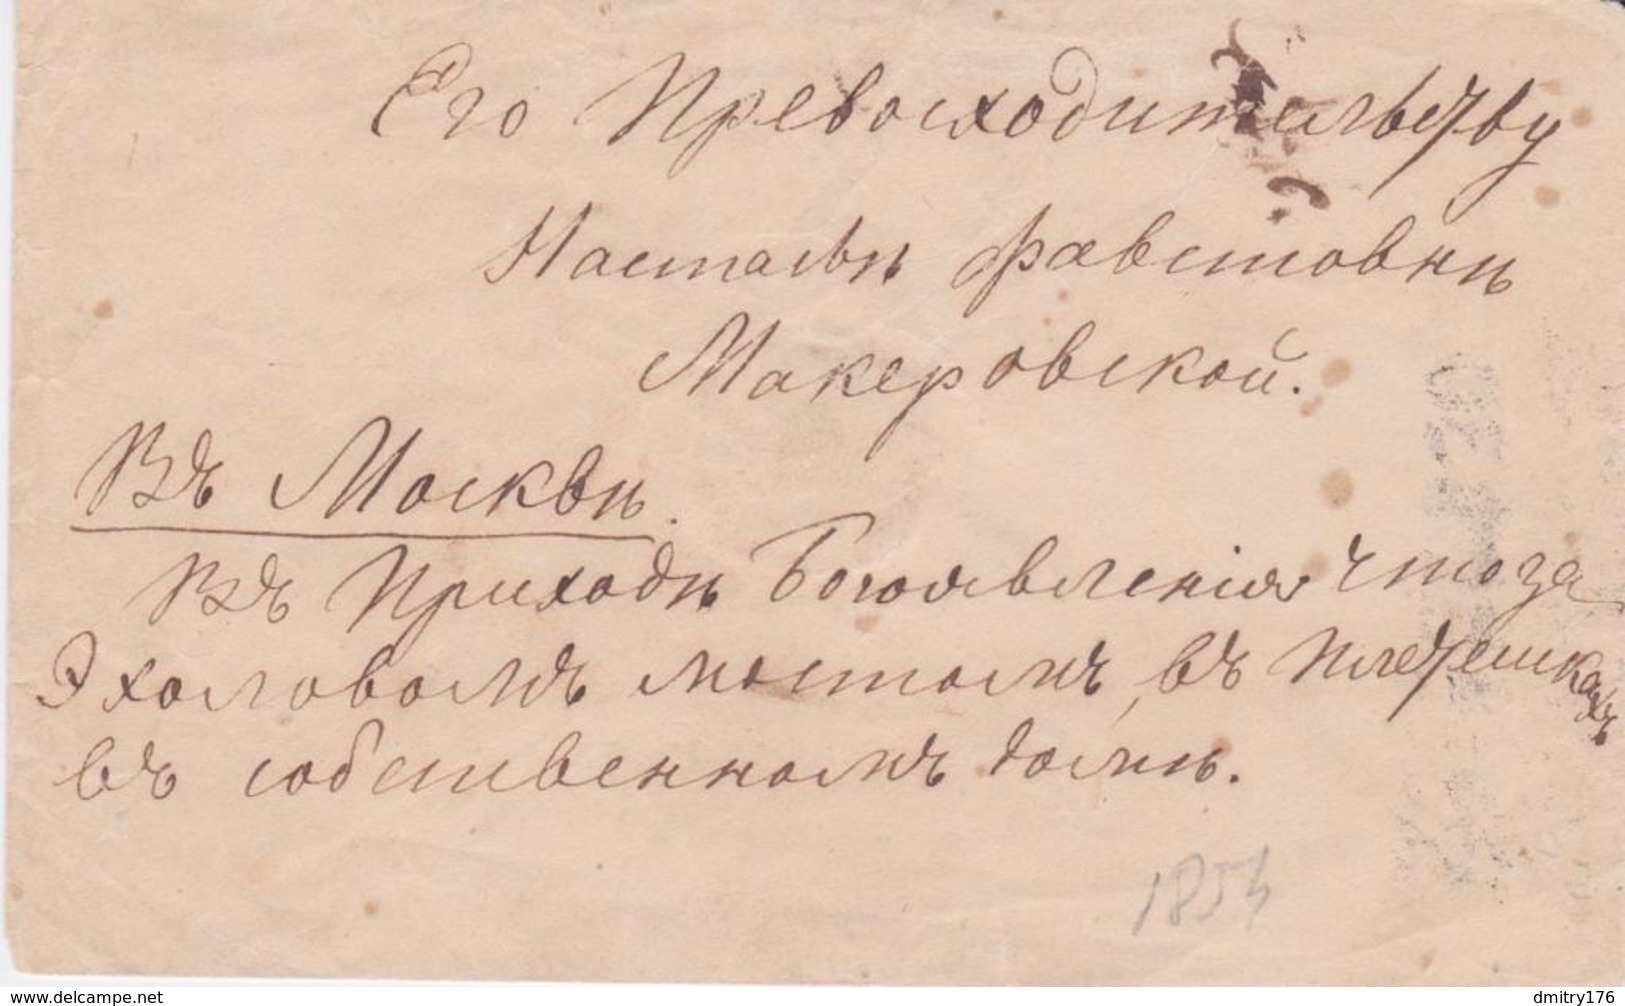 Его Превосходительству
Настасьѣ Фавстовнѣ
Макеровской.
Въ Москвѣ.
Въ Приходѣ Богоявленія что за
Эхаловомъ мостомъ, въ Плетешкахъ
въ собственномъ домѣ.
1854
www.delcampe.net
dmitry176